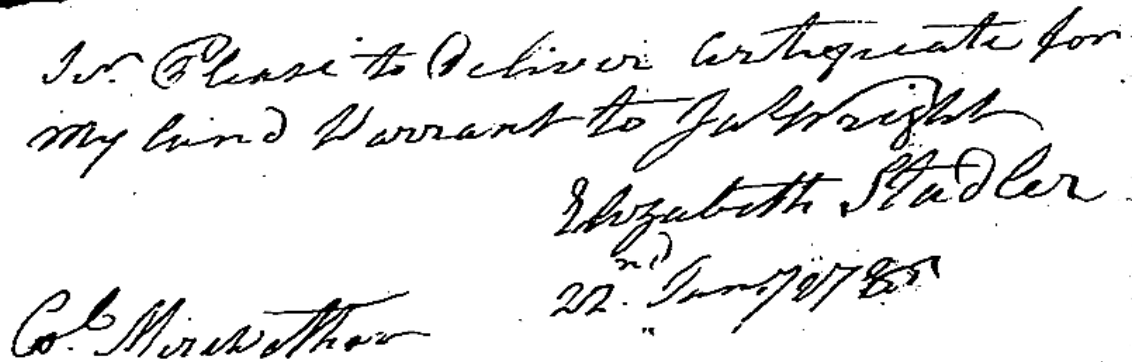 Sir. Please to Deliver Certifiquate for
my land Warrant to Ja Wright
Elizabeth Stadler
22nd. Jany 178
Col. Meriwether